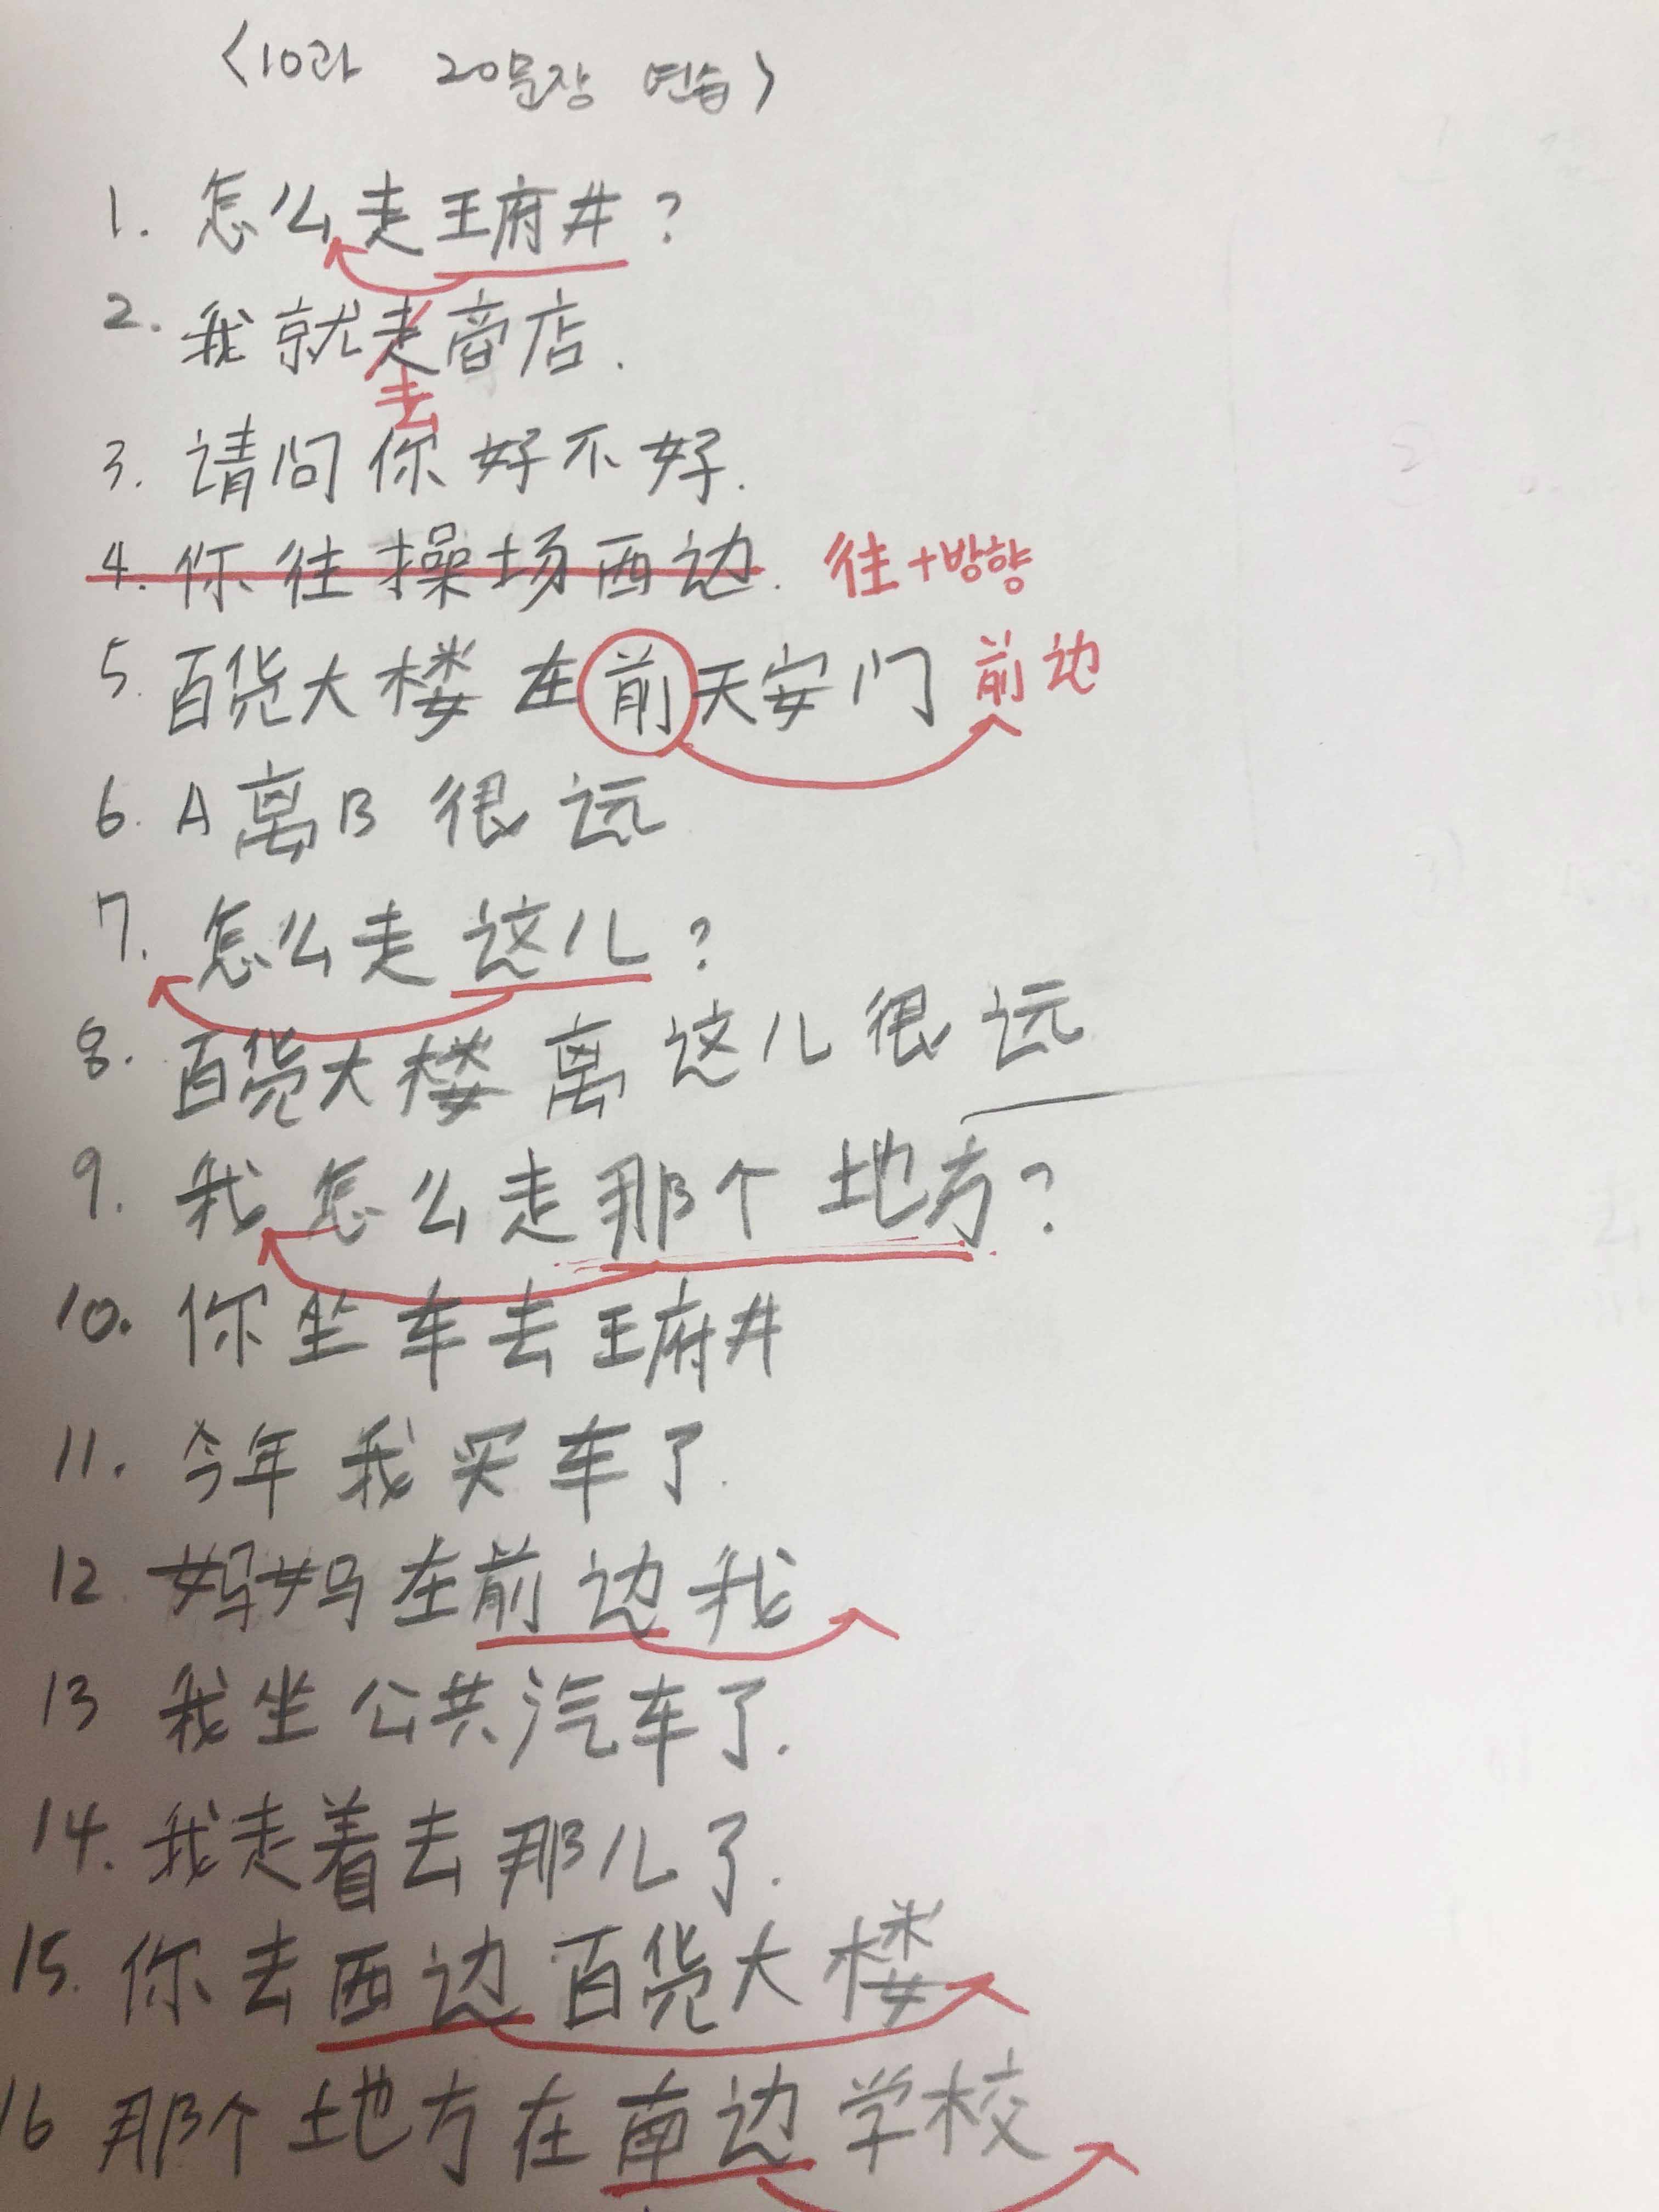 <10과 20문장 연습>
1. 怎么走王府井?
2. 我就走商店.
去
3. 请问你好不好.
4. 你往操场西边. 往+방향
5. 百货大楼在前天安门 前边
6. A离B 很远
7. 怎么走这儿?
8. 百货大楼离这儿很远
9. 我怎么走那个地方?
10. 你坐车去王府井
11. 今年我买车了.
12 妈妈在前边我
13 我坐公共汽车了.
14. 我走着去那儿了.
15. 你去西边百货大楼
16 那个地方在南边学校